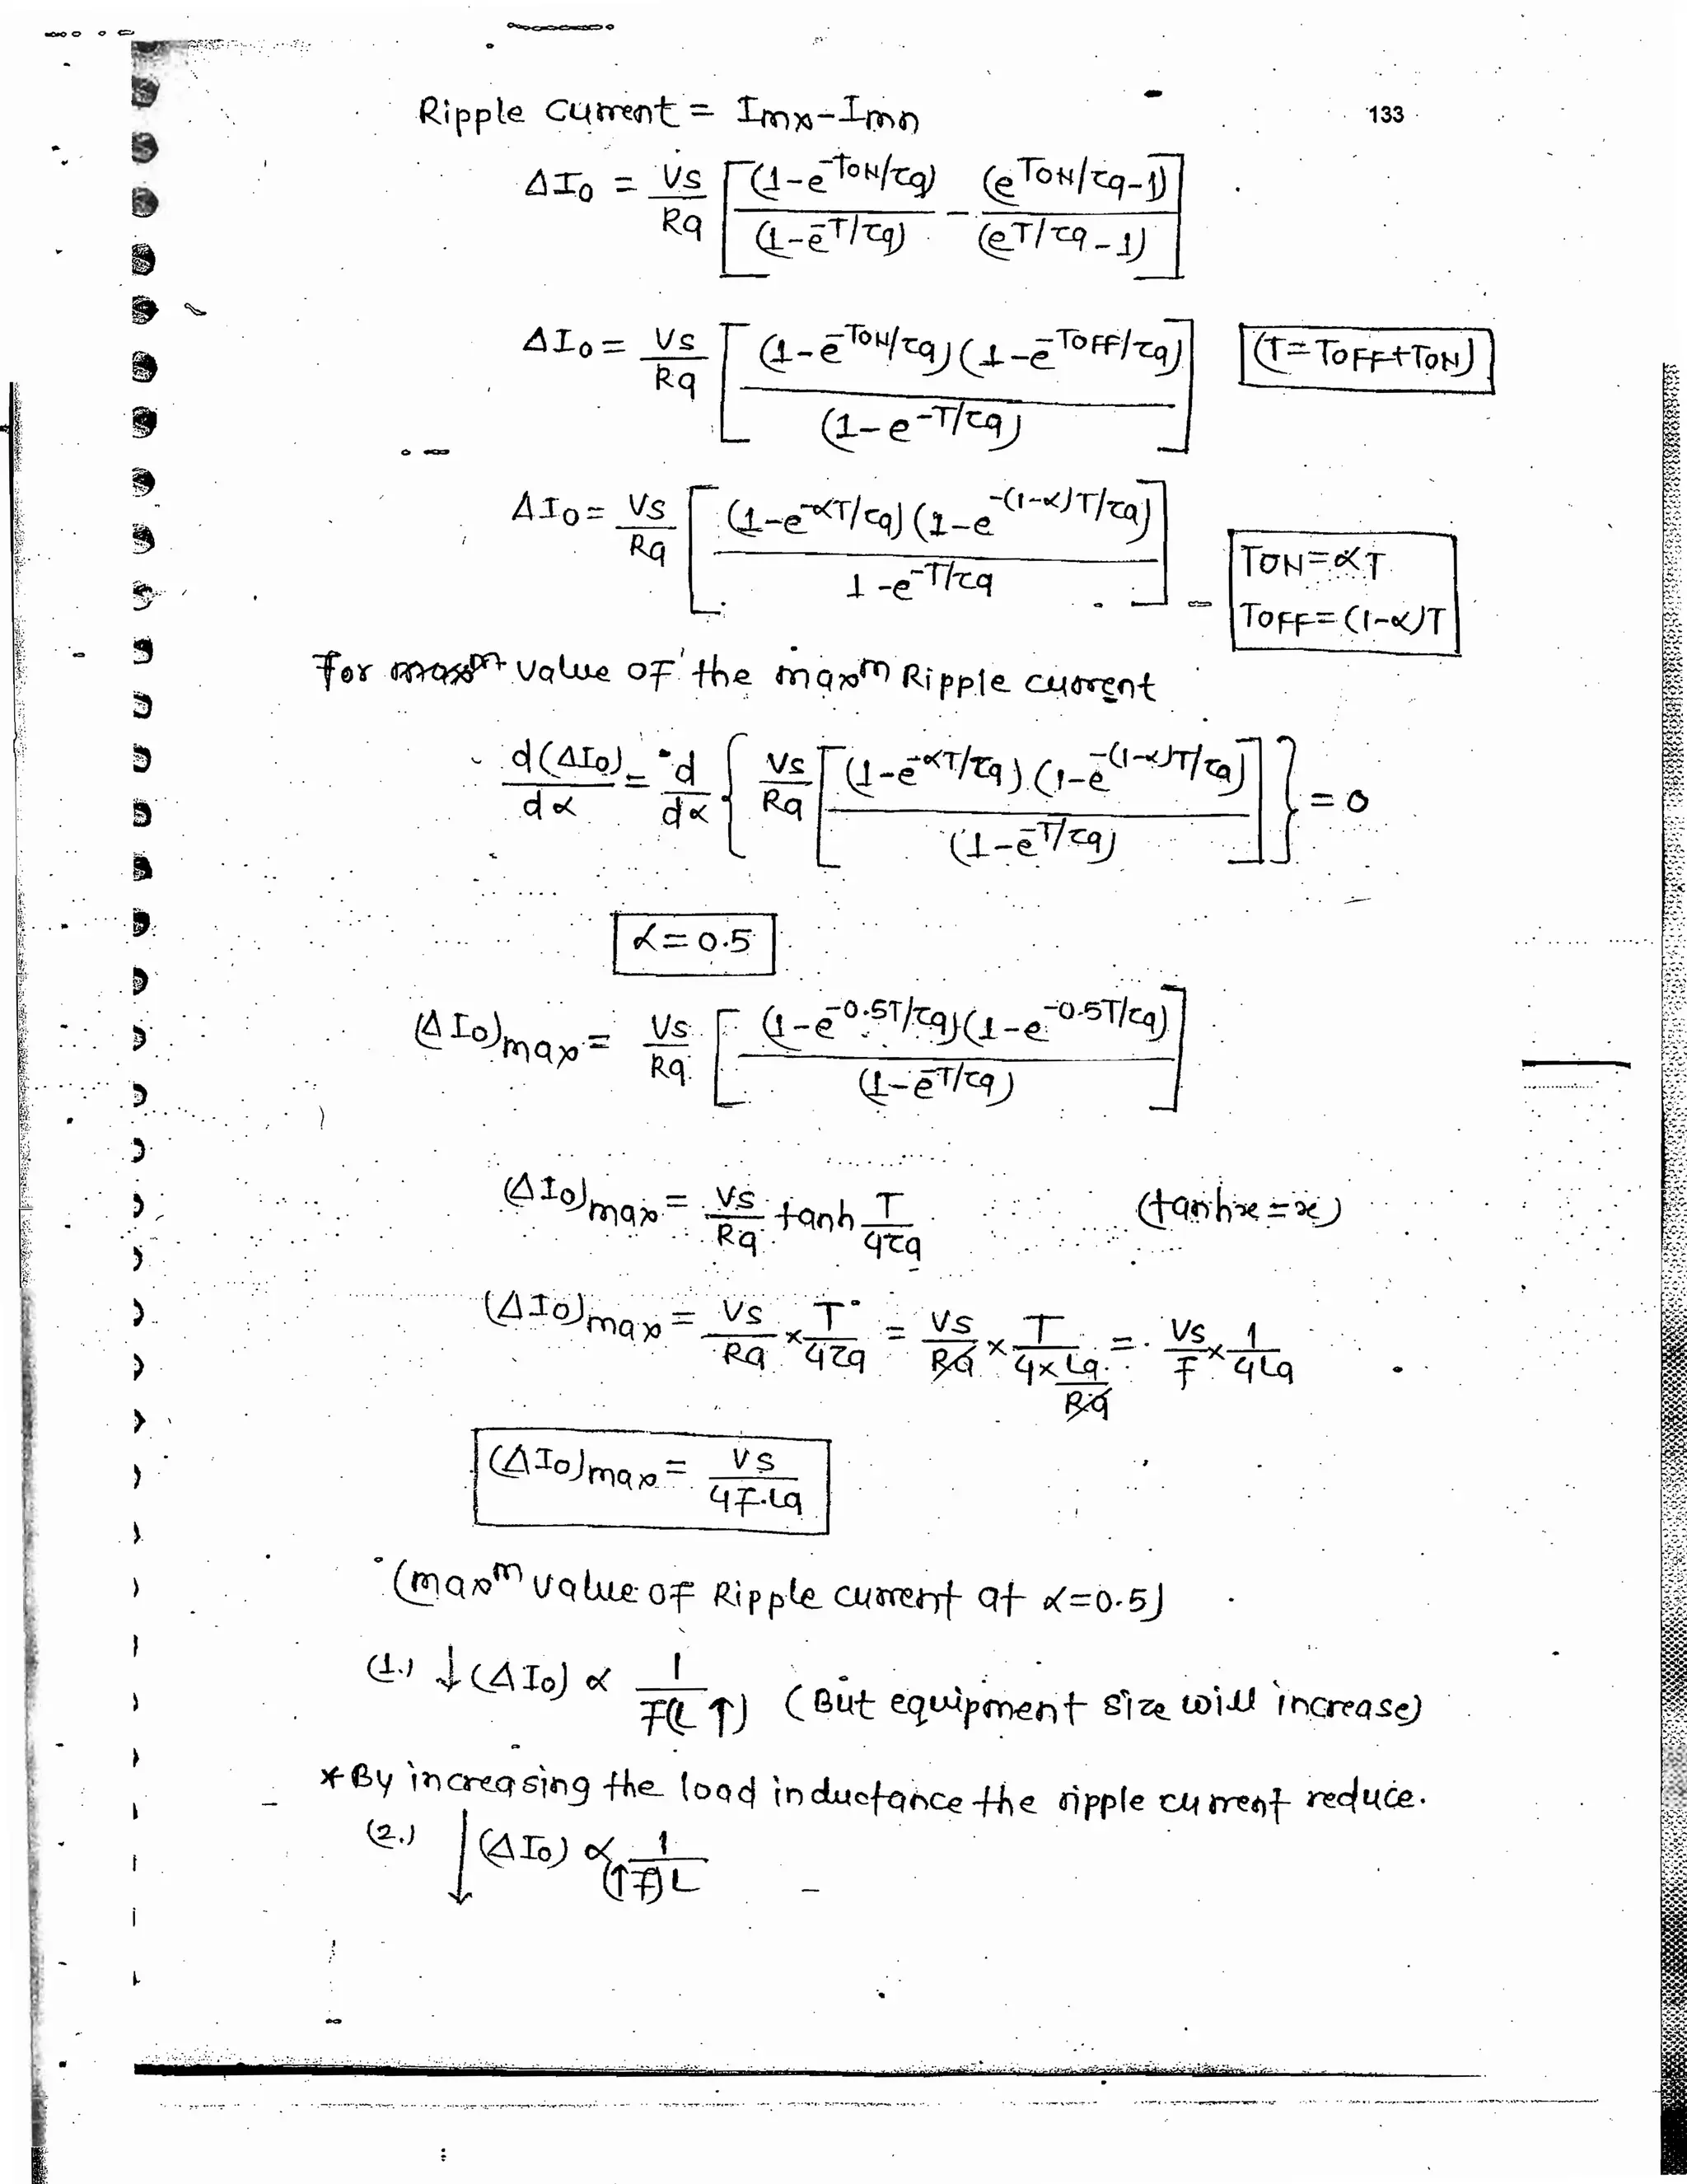 133
Ripple Current = Imx-Imn
ΔIo = Vs/Ra [ (1-e^-TON/τa)/(1-e^-T/τa) - (e^TON/τa-1)/(e^T/τa-1) ]
ΔIo = Vs/Ra [ (1-e^-TON/τa)(1-e^-TOFF/τa)/(1-e^-T/τa) ] (T=TOFF+TON)
ΔIo = Vs/Ra [ (1-e^-αT/τa)(1-e^-(1-α)T/τa)/1-e^-T/τa ]
TON=αT
TOFF=(1-α)T
For maxm value of the maxm Ripple current
d(ΔIo)/dα = d/dα { Vs/Ra [ (1-e^-αT/τa)(1-e^-(1-α)T/τa)/(1-e^-T/τa) ] } = 0
α=0.5
(ΔIo)max = Vs/Ra [ (1-e^-0.5T/τa)(1-e^-0.5T/τa)/(1-e^-T/τa) ]
(ΔIo)max = Vs/Ra tanh T/4τa (tanhx=x)
(ΔIo)max = Vs/Ra × T/4τa = Vs/Ra × T/(4×La/Ra) = Vs/F × 1/4La
(ΔIo)max = Vs/4F.La
(maxm value of Ripple current at α=0.5)
(1.) ↓(ΔIo) α 1/F(L↑) (But equipment size will increase)
*By increasing the load inductance the ripple current reduce.
(2.) ↓(ΔIo) α 1/(↑F)L